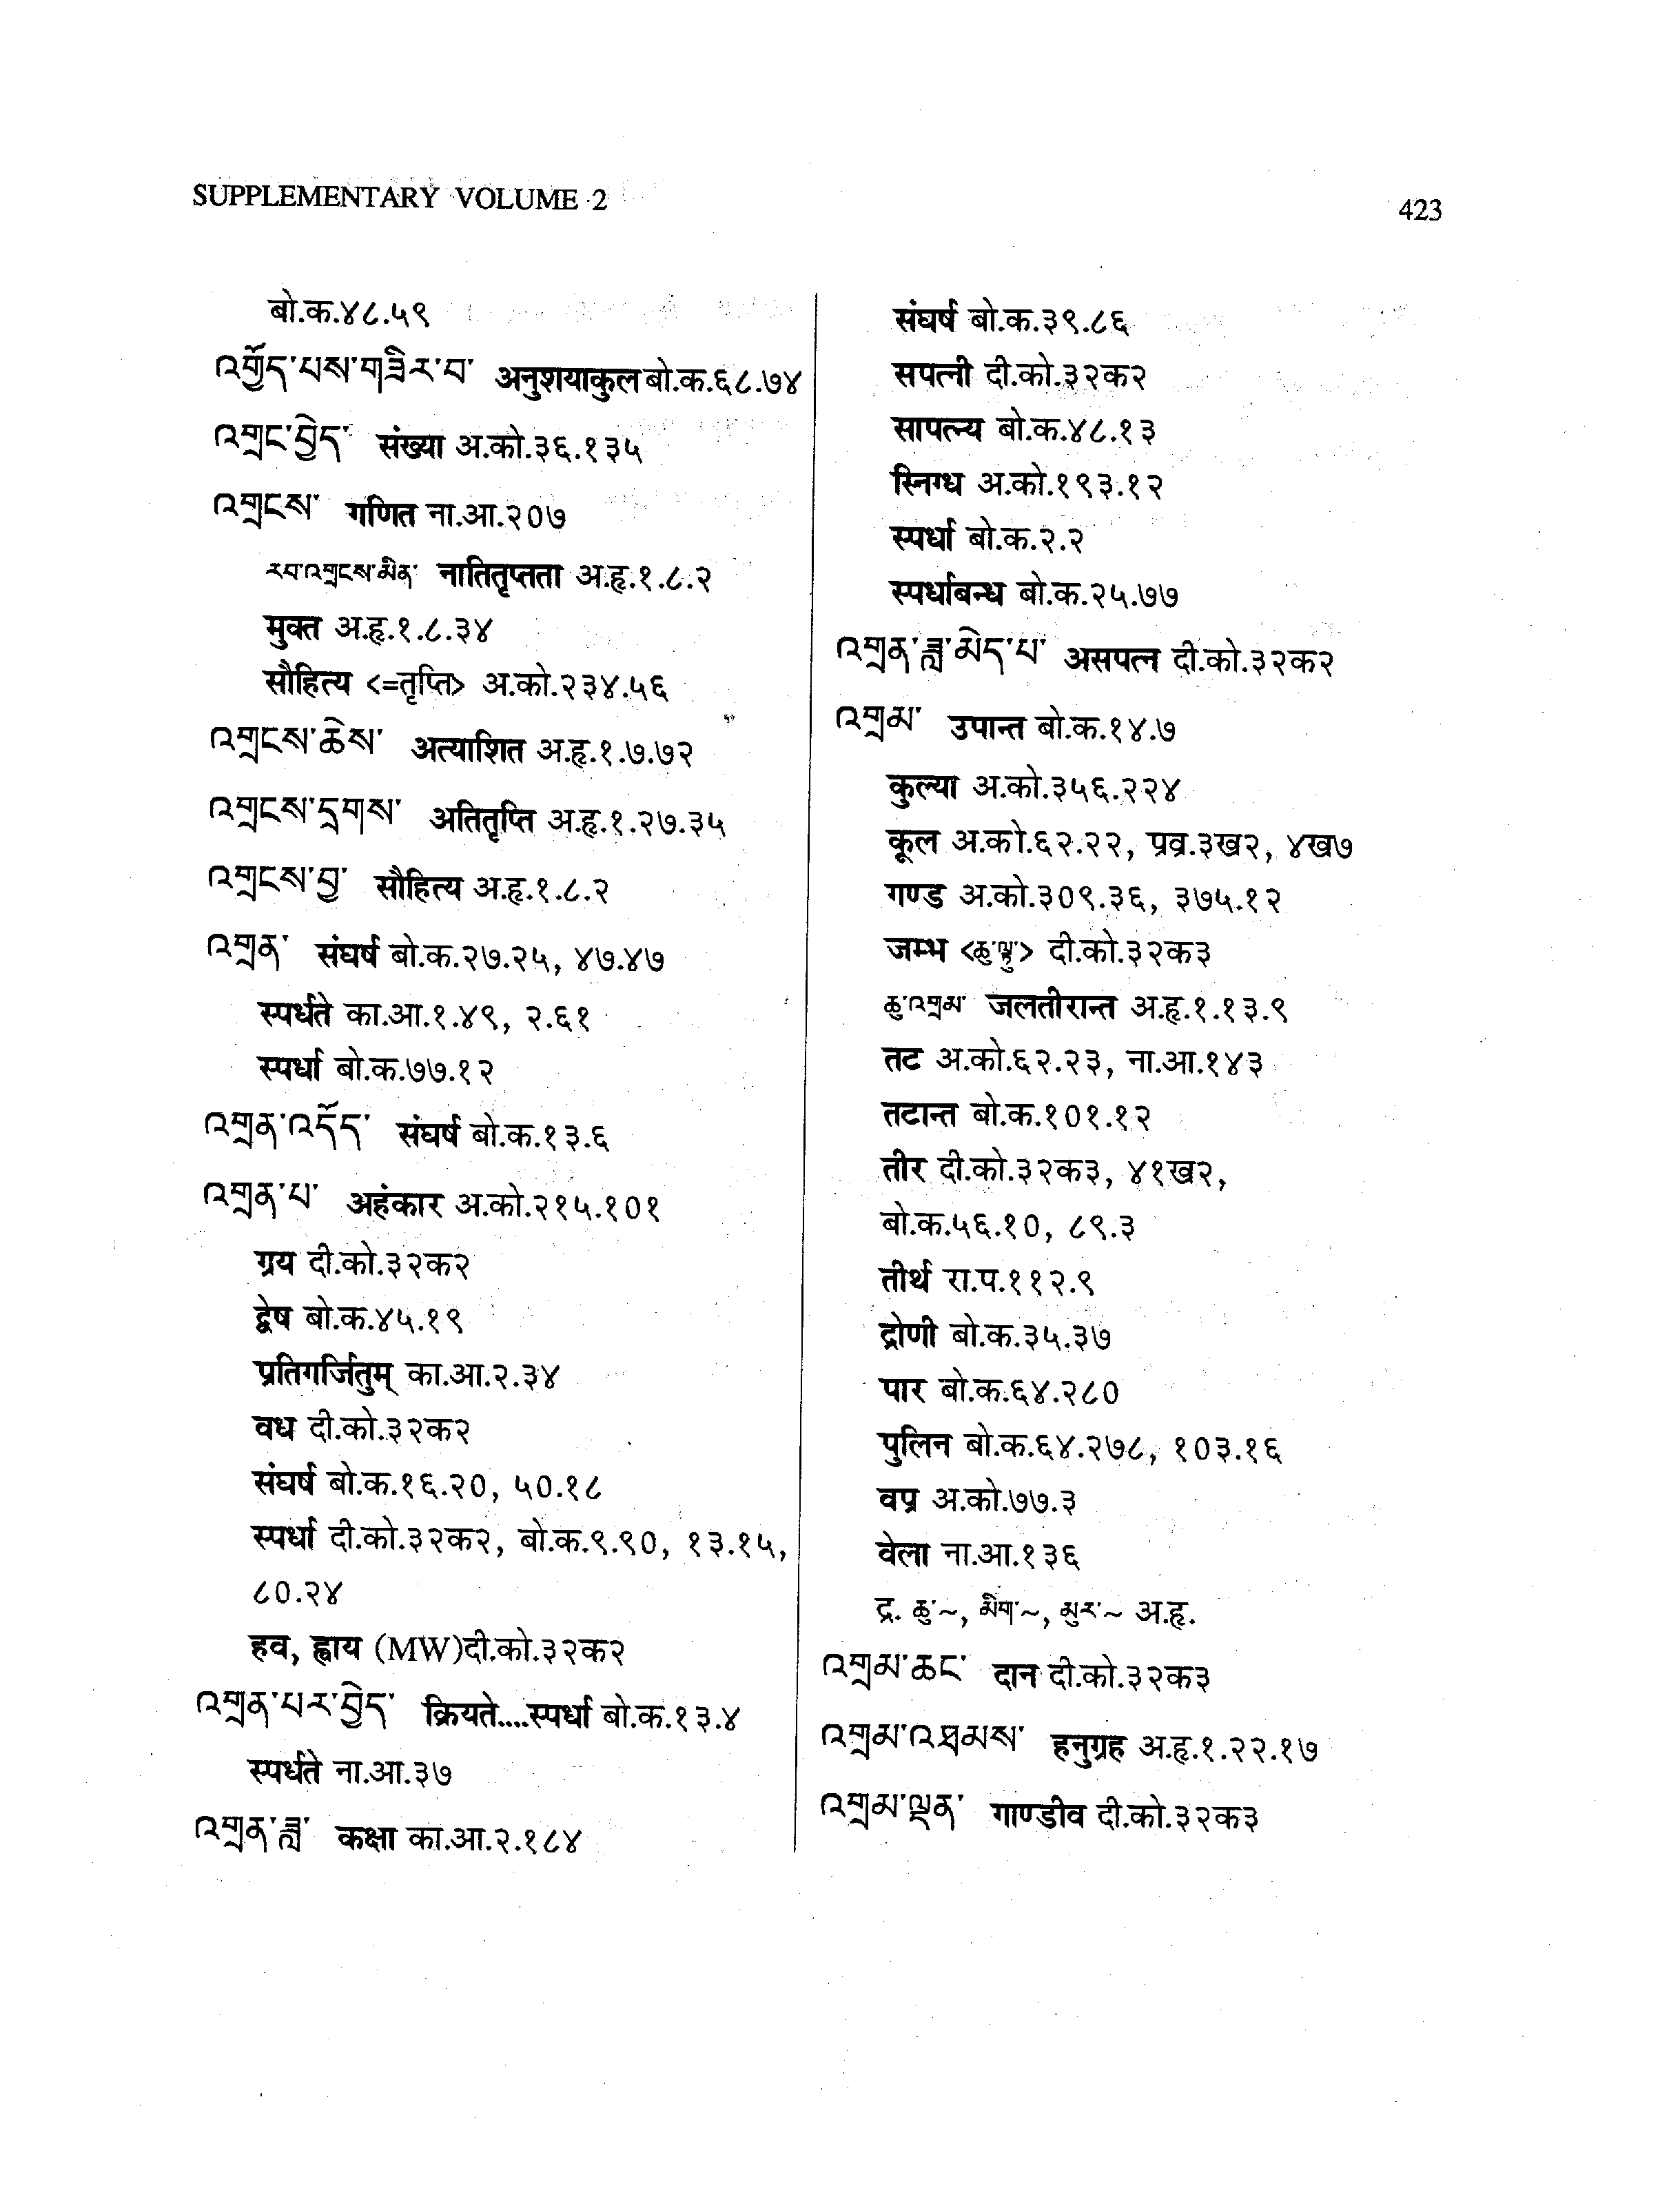 SUPPLEMENTARY VOLUME 2
423
बो.क.४८.५९
འགྱོད་པས་གཟིར་བ་ अनुशयाकुल बो.क.६८.७४
འགྲང་བྱེད་ संख्या अ.को.३६.१३५
འགྲངས་ गणित ना.आ.२०७
རབ་འགྲངས་མིན་ नातितृप्तता अ.हृ.१.८.२
मुक्त अ.हृ.१.८.३४
सौहित्य <=तृप्ति> अ.को.२३४.५६
འགྲངས་ཆེས་ अत्याशित अ.हृ.१.७.७२
འགྲངས་དྲགས་ अतितृप्ति अ.हृ.१.२७.३५
འགྲངས་བྱ་ सौहित्य अ.हृ.१.८.२
འགྲན་ संघर्ष बो.क.२७.२५, ४७.४७
स्पर्धते का.आ.१.४९, २.६१
स्पर्धा बो.क.७७.१२
འགྲན་འདོད་ संघर्ष बो.क.१३.६
འགྲན་པ་ अहंकार अ.को.२१५.१०१
ग्रय दी.को.३२क२
द्वेष बो.क.४५.१९
प्रतिगर्जितुम् का.आ.२.३४
वध दी.को.३२क२
संघर्ष बो.क.१६.२०, ५०.१८
स्पर्धा दी.को.३२क२, बो.क.९.९०, १३.१५,
८०.२४
हव, ह्वाय (MW)दी.को.३२क२
འགྲན་པར་བྱེད་ क्रियते....स्पर्धा बो.क.१३.४
स्पर्धते ना.आ.३७
འགྲན་ཟླ་ कक्षा का.आ.२.१८४
संघर्ष बो.क.३९.८६
सपत्नी दी.को.३२क२
सापत्न्य बो.क.४८.१३
स्निग्ध अ.को.१९३.१२
स्पर्धा बो.क.२.२
स्पर्धाबन्ध बो.क.२५.७७
འགྲན་ཟླ་མེད་པ་ असपत्न दी.को.३२क२
འགྲམ་ उपान्त बो.क.१४.७
कुल्या अ.को.३५६.२२४
कूल अ.को.६२.२२, प्रव्र.३ख२, ४ख७
गण्ड अ.को.३०९.३६, ३७५.१२
जम्भ दी.को.३२क३
ཆུ་འགྲམ་ जलतीरान्त अ.हृ.१.१३.९
तट अ.को.६२.२३, ना.आ.१४३
तटान्त बो.क.१०१.१२
तीर दी.को.३२क३, ४१ख२,
बो.क.५६.१०, ८९.३
तीर्थ रा.प.११२.९
द्रोणी बो.क.३५.३७
पार बो.क.६४.२८०
पुलिन बो.क.६४.२७८, १०३.१६
वप्र अ.को.७७.३
वेला ना.आ.१३६
द्र. ཆུ་~, མིག་~, མུར་~ अ.हृ.
འགྲམ་ཆང་ दान दी.को.३२क३
འགྲམ་འཐམས་ हनुग्रह अ.हृ.१.२२.१७
འགྲམ་ལྡན་ गाण्डीव दी.को.३२क३